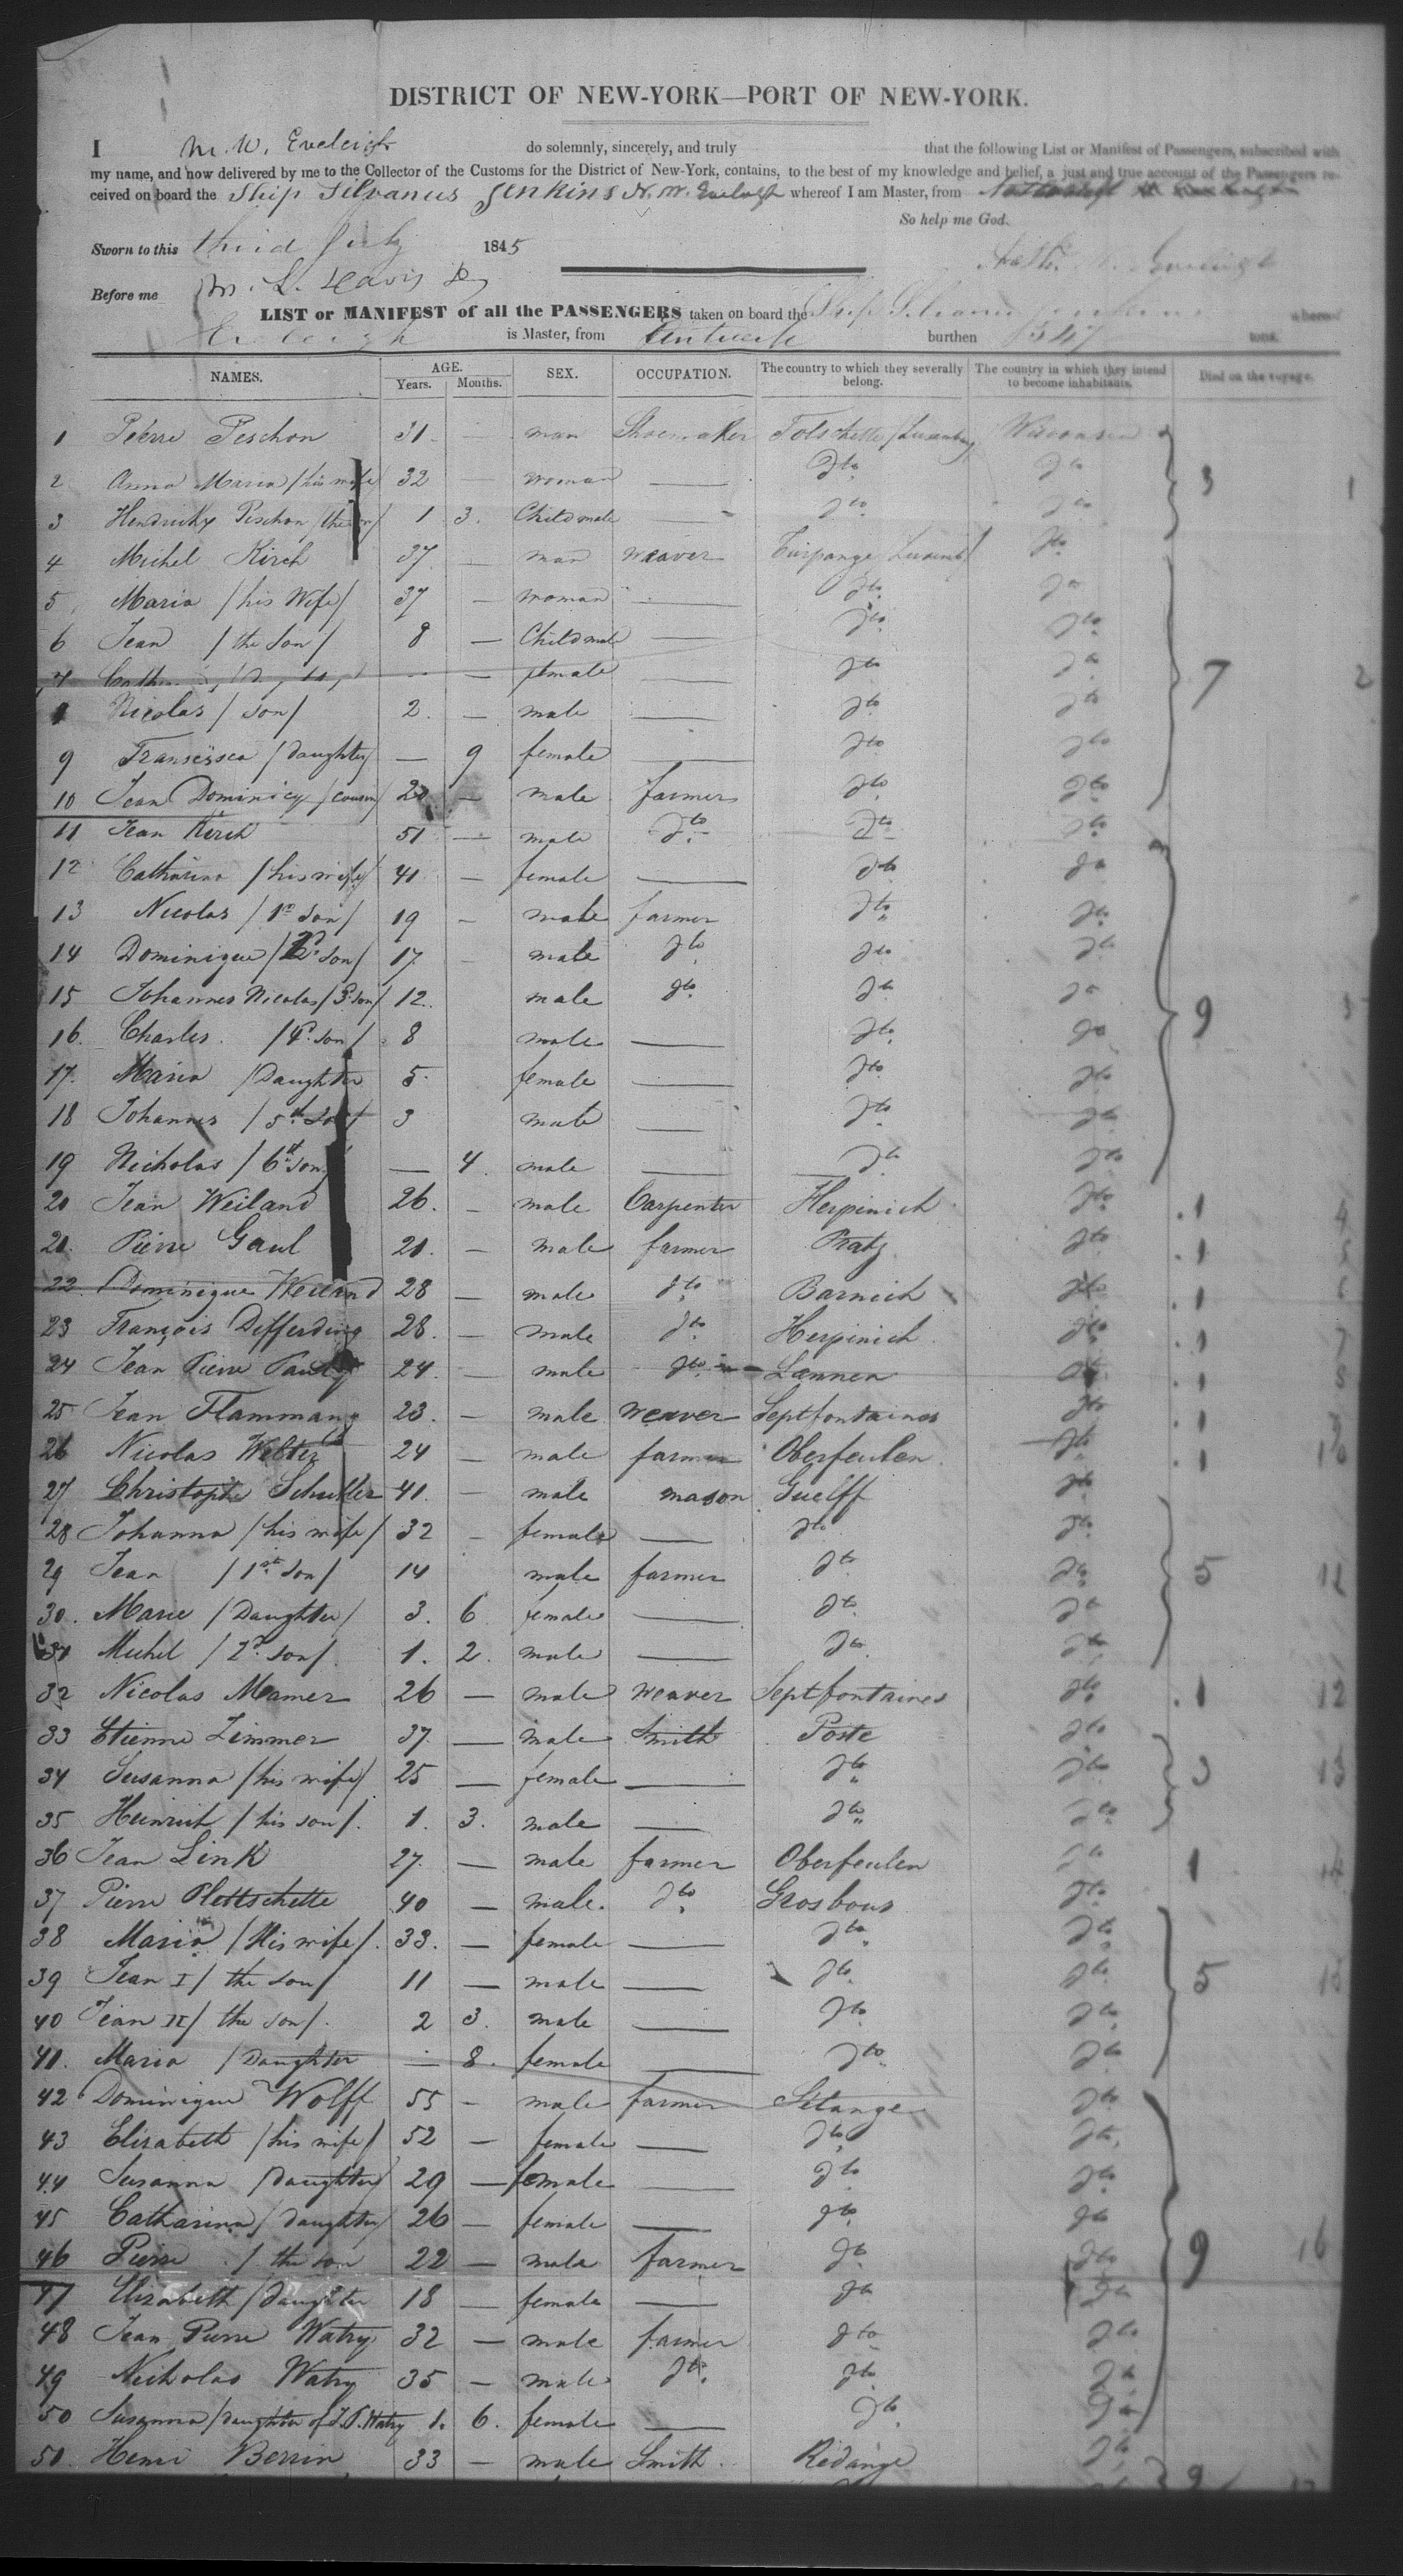 DISTRICT OF NEW-YORK—PORT OF NEW-YORK.
I M. W. Eveleigh do solemnly, sincerely, and truly that the following List or Manifest of Passengers, subscribed with
my name, and now delivered by me to the Collector of the Customs for the District of New-York, contains, to the best of my knowledge and belief, a just and true account of the Passengers re-
ceived on board the Ship Silvanus Jenkins whereof I am Master, from
So help me God.
Sworn to this third July 1845
Before me M. L. Davis
LIST or MANIFEST of all the PASSENGERS taken on board the Ship whereof
is Master, from burthen 547 tons.
NAMES. AGE. Years. Months. SEX. OCCUPATION. The country to which they severally belong. The country in which they intend to become inhabitants. Died on the voyage.
1 Peirre Peschon 31 — man Shoemaker Wisconsin
2 Anna Maria / his wife / 32 — woman — Dto Dto 3 1
3 Peschon 1 3. Child male — Dto Dto
4 Michel Kirch 37 — man weaver Dto
5 Maria / his Wife / 37 — woman — Dto Dto
6 Jean / the Son / 8 — Child male — Dto Dto
7 — female — Dto Dto 7 2
8 Nicolas / Son / 2. — male — Dto Dto
9 Daughter — 9 female — Dto Dto
10 Jean Dominicy / Cousin / 20 — male farmer Dto Dto
11 Jean Kirch 51 — male Dto Dto Dto
12 Catharina / his wife / 41 — female — Dto Dto
13 Nicolas / 1st Son / 19 — male farmer Dto Dto
14 Dominique / 2d Son / 17 — male Dto Dto Dto
15 Johannes Nicolas / 3d Son / 12 male Dto Dto Dto 9 3
16. Charles / 4th son / 8 male — Dto Dto
17. Maria / Daughter 5. female — Dto Dto
18 Johannes / 5th Son / 3 male — Dto Dto
19 Nicholas / 6th Son / — 4. male — Dto Dto
20 Jean Weiland 26. — male Carpenter Herpinich Dto 1 4
21. Pierre Gaul 21. — male farmer Pratz Dto 1 5
22 Dominique Weiland 28 — male Dto Barnich Dto 1 6
23 François Differding 28. — male Dto Herpinich Dto 1 7
24 Jean Pierre Pauly 24. — male Dto Lannen Dto 1 8
25 Jean Flammang 23. — male weaver Septfontaines Dto 1 9
26 Nicolas Welter 24 — male farmer Oberfeulen Dto 1 10
27 Christophe Schuller 41. — male mason Guelff Dto
28 Johanna / his wife / 32 — female — Dto Dto
29 Jean / 1st Son / 14 male farmer Dto Dto 5 11
30. Marie / Daughter / 3. 6 female — Dto Dto
31 Michel / 2d son / 1. 2. male — Dto Dto
32 Nicolas Mamer 26 — male weaver Septfontaines Dto 1 12
33 Etienne Zimmer 37. — male Smith Poste Dto
34 Susanna / his wife / 25 — female — Dto Dto 3 13
35 Heinrich / his son / 1. 3. male — Dto Dto
36 Jean Link 27. — male farmer Oberfeulen Dto 1 14
37 Pierre Plottschette 40 — male. Dto Grosbous Dto
38 Maria / His wife / 33. — female — Dto Dto
39 Jean I / the son / 11 — male — Dto Dto 5 15
40 Jean II / the son / 2 3. male — Dto Dto
41. Maria / Daughter — 8. female — Dto Dto
42 Dominique Wolff 55 — male farmer Dto
43 Elisabeth / his wife / 52 — female — Dto Dto
44 Susanna / Daughter / 29 — female — Dto Dto
45 Catharina / Daughter / 26 — female — Dto Dto
46 Pierre / the son 22 — male farmer Dto Dto 9 16
47 Elizabeth / Daughter 18 — female — Dto Dto
48 Jean Pierre Watry 32 — male farmer Dto Dto
49 Nicholas Watry 35 — male Dto Dto Dto
50 Susanna / Daughter of J. P. Watry 1. 6. female — Dto Dto
51. Henri Berrin 33 — male Smith. Redange Dto